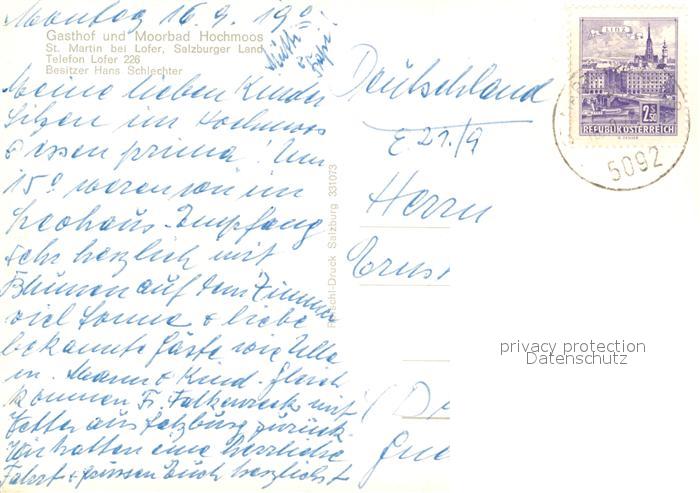 Montag 16.9. 19⁰⁰
Gasthof und Moorbad Hochmoos
St. Martin bei Lofer, Salzburger Land
Telefon Lofer 226
Besitzer Hans Schlechter
Meine lieben Kinder
Sitzen im Hochmoos
& essen prima! Um
15⁰ waren wir im
Seehaus - Empfang
sehr herzlich mit
Blumen auf dem Zimmer
viel Sonne & liebe
bekannte Gäste wie Ulla
m. Mann & Kind. Gleich
kommen Fr. mit
Vetter aus Salzburg zurück.
Wir hatten eine herrliche
Fahrt & grüssen Euch herzlichst
Mutti
&
Deutschland
E 21./9
Herrn
Ernst
LINZ
2 S 50
REPUBLIK ÖSTERREICH
5092
-Druck Salzburg 331073
privacy protection
Datenschutz